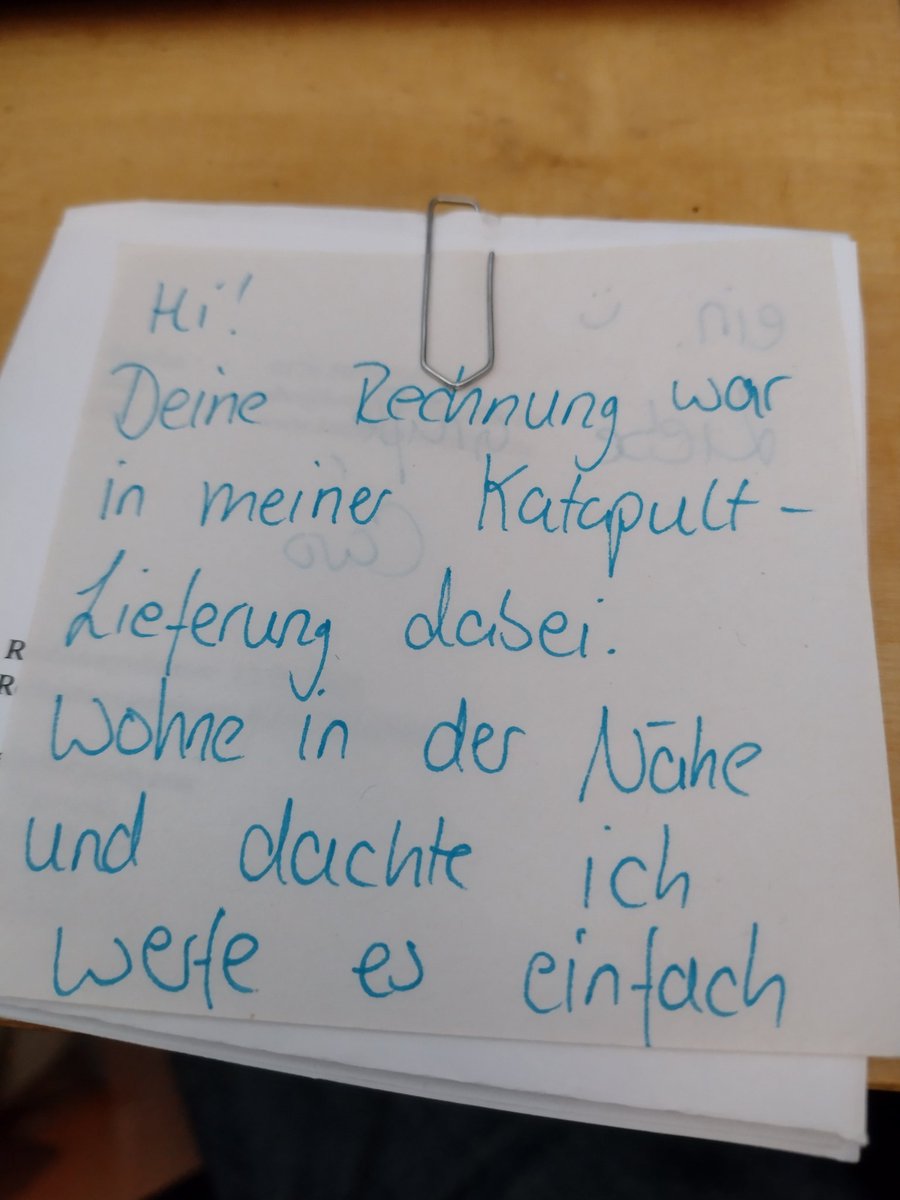 Hi!
Deine Rechnung war
in meiner Katapult-
Lieferung dabei.
Wohne in der Nähe
und dachte ich
werfe es einfach
ein. ü
Liebe Grüße
Caro
R
R